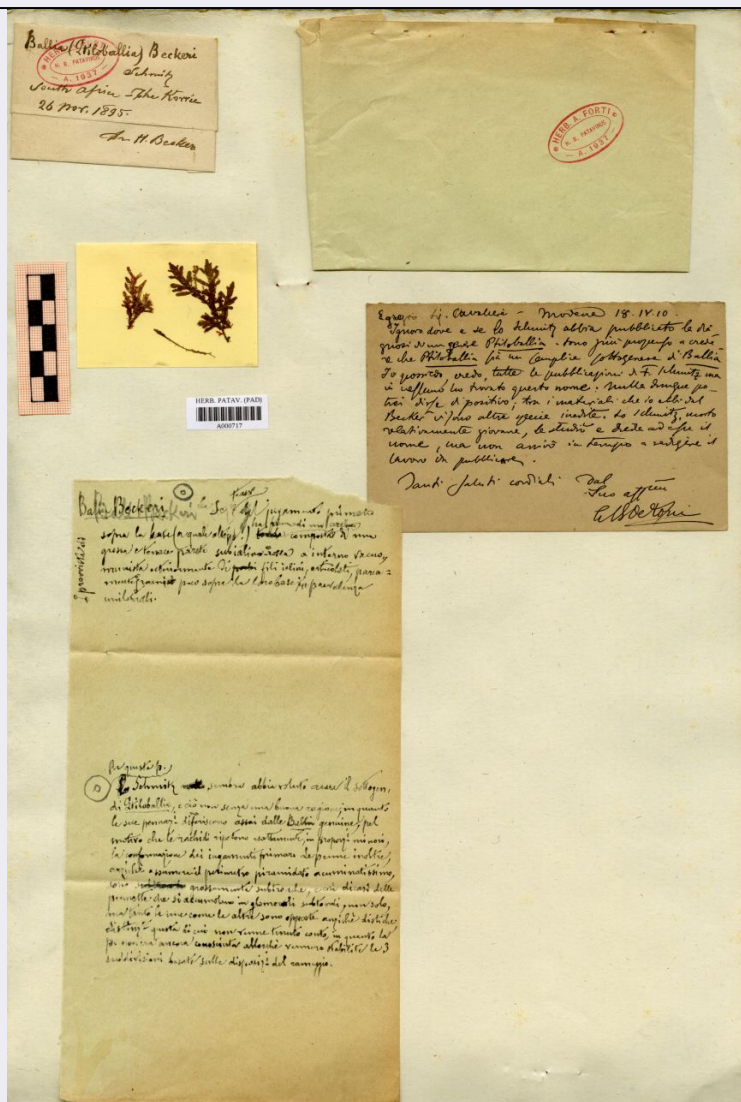 Ballia (Ptiloballia) Beckeri
Schmitz
South Africa - The Kowie
26 Nov. 1895.
Dr. H. Becker
HERB. A. FORTI
H. B. PATAVINUS
A. 1937
HERB. A. FORTI
H. B. PATAVINUS
A. 1937
HERB. PATAV. (PAD)
A000717
Egregio Sig. Cavaliere - Modena 18.IV.10.
Ignoro dove e se lo Schmitz abbia pubblicato la dia
gnosi di un genere Ptiloballia. Sono più propenso a crede
re che Ptiloballia sia un semplice sottogenere di Ballia
Io possiedo, credo, tutte le pubblicazioni di F. Schmitz ma
in nessuna ho trovato questo nome. Nulla dunque po-
trei dirle di positivo; tra i materiali che io ebbi dal
Becker vi sono altre specie inedite. Lo Schmitz, morto
relativamente giovane, le studiò e diede ad esse il
nome, ma non arrivò in tempo a redigere il
lavoro da pubblicare.
Tanti saluti cordiali dal
Suo affmo
Ballia Beckeri
jugamento primario
sopra la base composta di una
grossa e tenace parete a interno vacuo,
munita esternamente di fili articolati,
poco sopra la loro base in prevalenza
unilaterali.
Lo Schmitz sembra abbia voluto creare il sottogen.
di Ptiloballia, e ciò non senza una buona ragione, in quanto
le sue differiscono assai dalle Ballia genuine, pel
motivo che le rachidi ripetono esattamente, in proporz. minori,
la conformazione dei jugamenti primari. Le penne inoltre,
anziché assumere il perimetro piramidato acuminatissimo,
sono grossamente
pennette che si accumulano in glomeruli subtondi, non solo,
ma tanto le une come le altre sono opposte anziché distiche
di cui non venne tenuto conto, in quanto la
ancora conosciuta allorché vennero stabilite le 3
suddivisioni basate sulle disposiz. del rameggio.